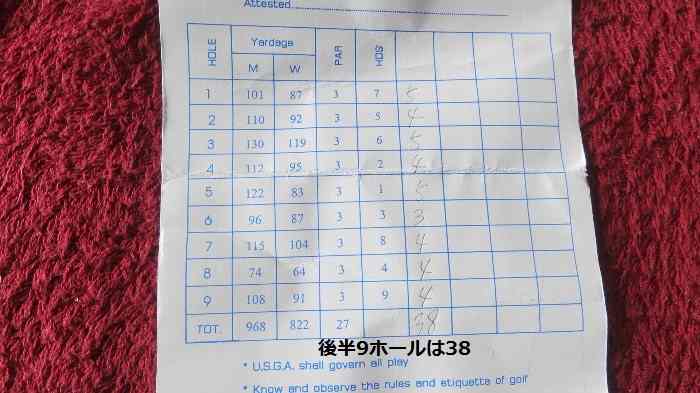 Attested
HOLE Yardage PAR HDS
M W
1 101 87 3 7 5
2 110 92 3 5 4
3 130 119 3 6 5
4 112 95 3 2 4
5 122 83 3 1 5
6 96 87 3 3 3
7 115 104 3 8 4
8 74 64 3 4 4
9 108 91 3 9 4
TOT. 968 822 27 38
後半9ホールは38
* U.S.G.A. shall govern all play
* Know and observe the rules and etiquette of golf